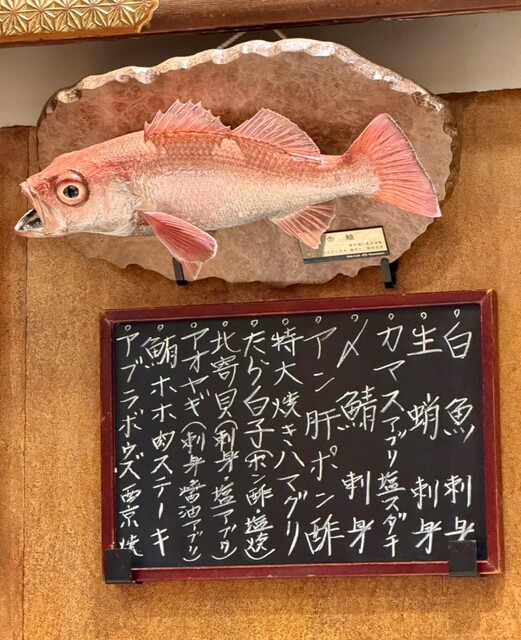 赤鯥
白魚刺身
生蛸刺身
カマスアブリ塩スダチ
〆鯖刺身
アン肝ポン酢
特大焼きハマグリ
たら白子(ポン酢・塩焼)
北寄貝(刺身・塩アブリ)
アオヤギ(刺身醤油アブリ)
鮪ホホ肉ステーキ
アブラボウズ西京焼